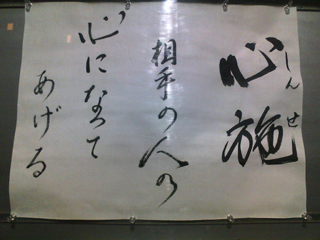 心施
しんせ
相手の人の
心になって
あげる